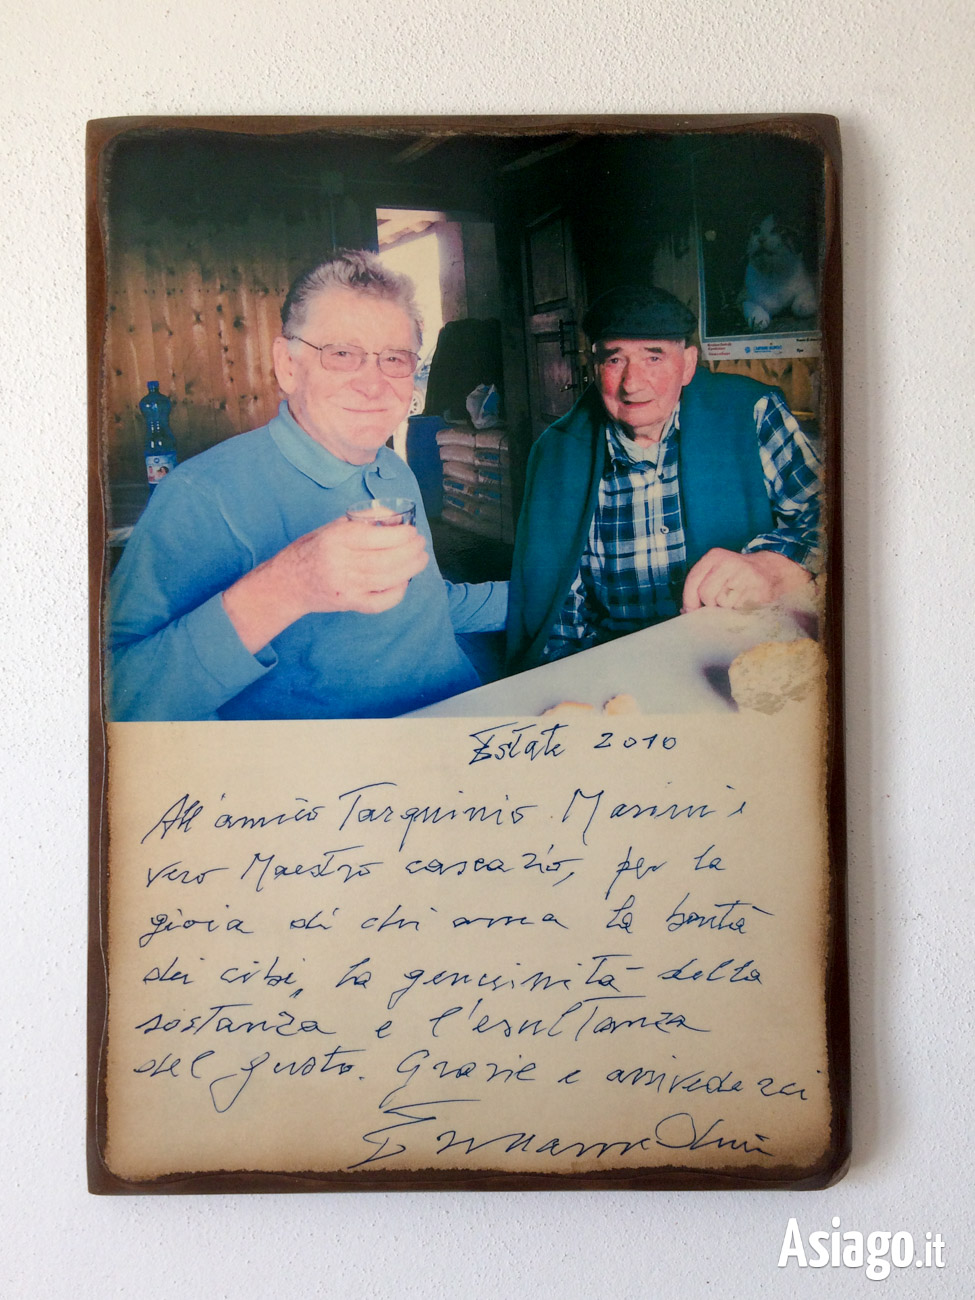 Estate 2010
All'amico Tarquinio Marini e
vero Maestro casearo, per la
gioia di chi ama la bontà
dei cibi, la genuinità della
sostanza e l'esultanza
del gusto. Grazie e arrivederci
Ermanno Olmi
Asiago.it